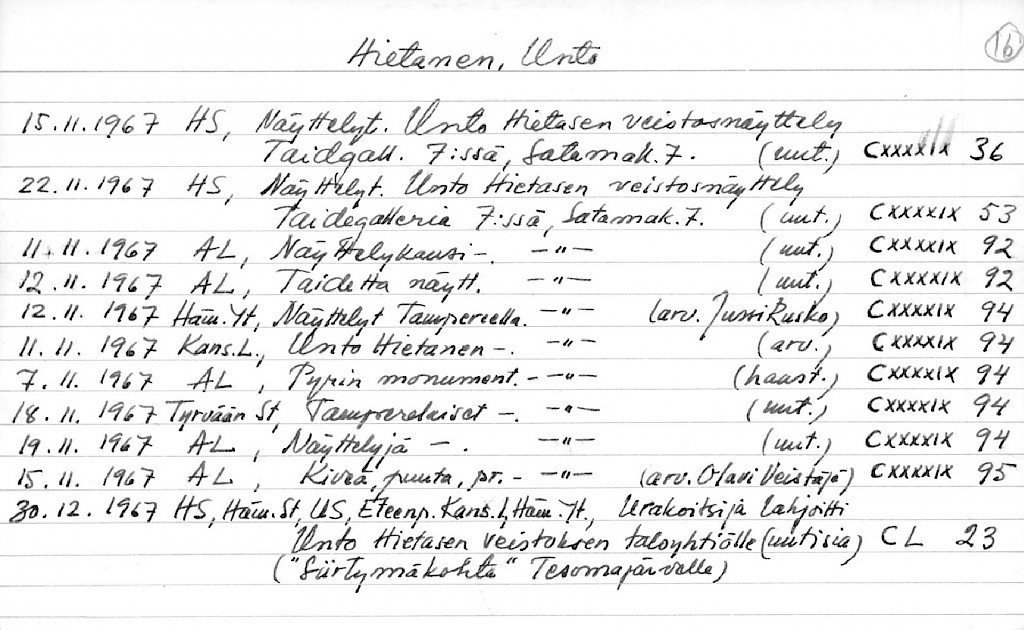 16
Hietanen, Unto
15.11.1967 HS, Näyttelyt. Unto Hietasen veistosnäyttely
Taidgall. 7:ssä, Satamak. 7. (uut.) CXXXXIX 36
22.11.1967 HS, Näyttelyt. Unto Hietasen veistosnäyttely
Taidegalleria 7:ssä, Satamak. 7. (uut.) CXXXXIX 53
11.11.1967 AL, Näyttelykausi -. -"- (uut.) CXXXXIX 92
12.11.1967 AL, Taidetta näytt. -"- (uut.) CXXXXIX 92
12.11.1967 Häm. Yt, Näyttelyt Tampereella. -"- (arv. Jussi Rusko) CXXXXIX 94
11.11.1967 Kans.L., Unto Hietanen -. -"- (arv.) CXXXXIX 94
7.11.1967 AL, Pyrin monument. - -"- (haast.) CXXXXIX 94
18.11.1967 Tyrvään St, Tamperelaiset -. -"- (uut.) CXXXXIX 94
19.11.1967 AL, Näyttelyjä -. -"- (uut.) CXXXXIX 94
15.11.1967 AL, Kiveä, puuta, pr. - -"- (arv. Olavi Veistäjä) CXXXXIX 95
30.12.1967 HS, Häm.St, US, Eteenp. Kans.L, Häm. Yt., Urakoitsija lahjoitti
Unto Hietasen veistoksen taloyhtiölle (uutisia) CL 23
("Siirtymäkohta" Tesomajärvelle)